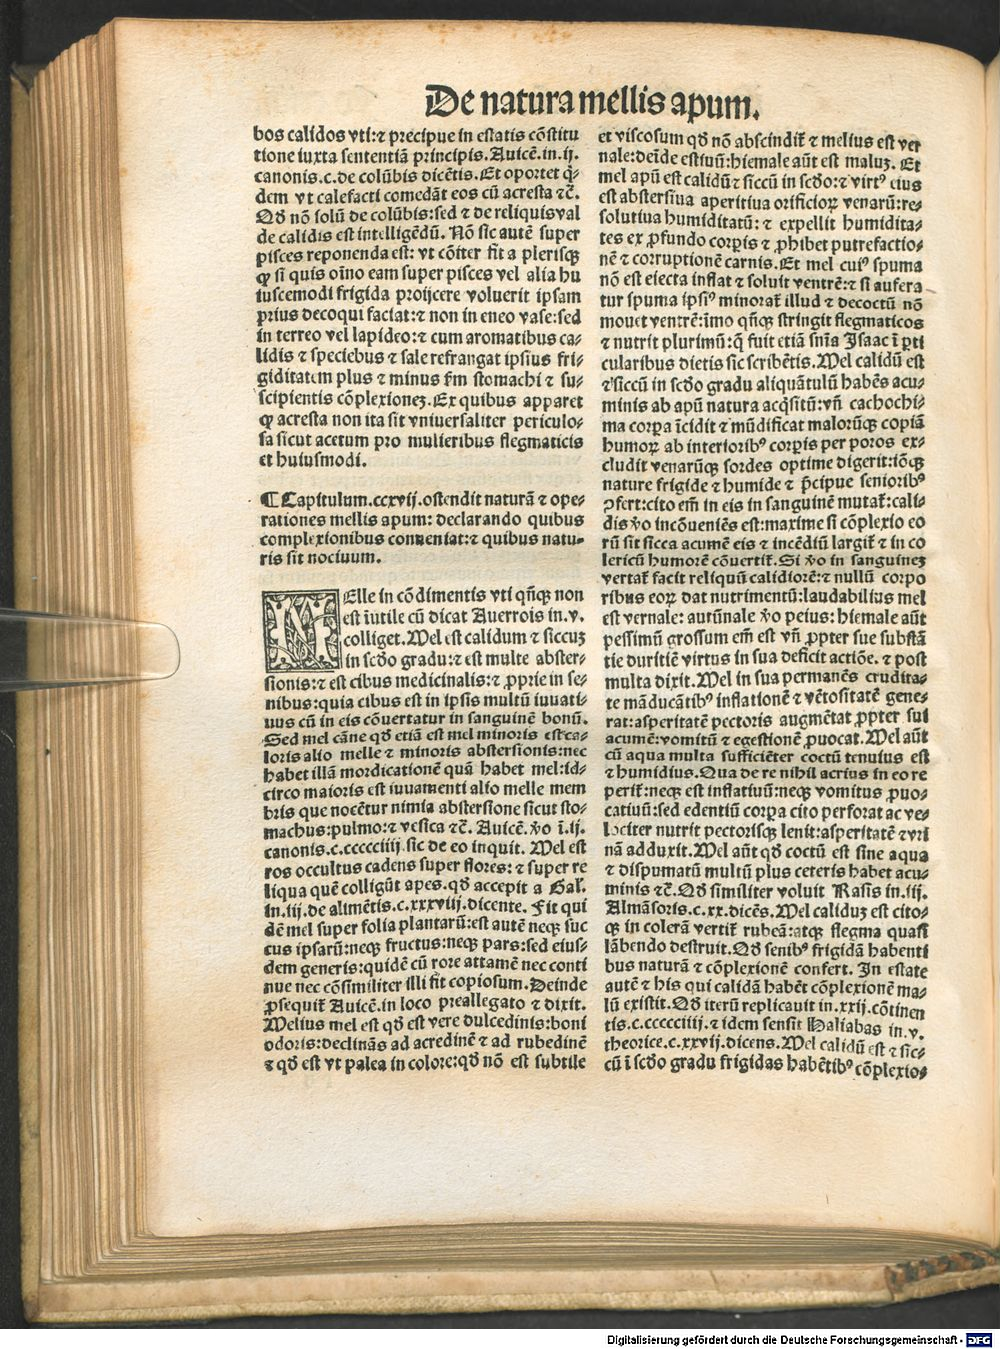 De natura mellis apum.
bos calidos vti:⁊ precipue in estatis cõstitu
tione iuxta sententiã principis.Auicẽ.in.ij.
canonis.c.de colũbis dicẽtis.Et oportet q̃⸗
dem vt calefacti comedãt eos cũ acresta ⁊c̃.
Qđ nõ solũ de colũbis:sed ⁊ de reliquis val
de calidis est intelligẽdũ. Nõ sic autẽ super
pisces reponenda est: vt cõiter fit a plerisqꝫ
ꝙ si quis oĩno eam super pisces vel alia hu
iuscemodi frigida proijcere voluerit ipsam
prius decoqui faciat:⁊ non in eneo vase:sed
in terreo vel lapideo:⁊ cum aromatibus ca⸗
lidis ⁊ speciebus ⁊ sale refrangat ipsius fri⸗
giditatem plus ⁊ minus s̃m stomachi ⁊ su⸗
scipientis cõplexionez.Ex quibus apparet
ꝙ acresta non ita sit vniuersaliter periculo⸗
sa sicut acetum pro mulieribus flegmaticis
et huiusmodi.
¶ Capitulum.ccxvij.ostendit naturã ⁊ ope⸗
rationes mellis apum: declarando quibus
complexionibus conueniat:⁊ quibus natu⸗
ris sit nociuum.
MElle in cõdimentis vti qñqꝫ non
est ĩutile cũ dicat Auerrois in.v.
colliget.Mel est calidum ⁊ siccuz
in scđo gradu:⁊ est multe abster⸗
sionis:⁊ est cibus medicinalis:⁊ ꝓprie in se⸗
nibus:quia cibus est in ipsis multũ iuuati⸗
uus cũ in eis cõuertatur in sanguinẽ bonũ.
Sed mel cãne qđ etiã est mel minoris est ca⸗
loris alio melle ⁊ minoris abstersionis:nec
habet illã mordicationẽ quã habet mel:id⸗
circo maioris est iuuamenti alio melle mem
bris que nocẽtur nimia abstersione sicut sto⸗
machus:pulmo:⁊ vesica ⁊c̃. Auicẽ. v̊o ĩ.ij.
canonis.c.cccccciiij.sic de eo inquit. Mel est
ros occultus cadens super flores: ⁊ super re
liqua quẽ colligũt apes.qđ accepit a Gal̃.
in.iij.de alimẽtis.c.xxxviij.dicente. Fit qui
dẽ mel super folia plantarũ:est autẽ neqꝫ suc
cus ipsarũ:neqꝫ fructus:neqꝫ pars:sed eius⸗
dem generis:quidẽ cũ rore attamẽ nec conti
nue nec cõsimiliter illi fit copiosum.Deinde
ꝓsequit̃ Auicẽ.in loco preallegato ⁊ dixit.
Melius mel est qđ est vere dulcedinis:boni
odoris:declinãs ad acredinẽ ⁊ ad rubedinẽ
⁊ qđ est vt palea in colore:qđ nõ est subtile
et viscosum qđ nõ abscindit̃ ⁊ melius est ver
nale:deĩde estiuũ:hiemale aũt est maluz. Et
mel apũ est calidũ ⁊ siccũ in scđo:⁊ virtꝰ eius
est abstersiua aperitiua orificioꝝ venarũ:re⸗
solutiua humiditatũ: ⁊ expellit humidita⸗
tes ex ꝓfundo corꝑis ⁊ ꝓhibet putrefactio⸗
nẽ ⁊ corruptionẽ carnis.Et mel cuiꝰ spuma
nõ est eiecta inflat ⁊ soluit ventrẽ:⁊ si aufera
tur spuma ipsiꝰ minorat̃ illud ⁊ decoctũ nõ
mouet ventrẽ:ĩmo qñqꝫ stringit flegmaticos
⁊ nutrit plurimũ:q̃ fuit etiã sñia Isaac ĩ ꝑti
cularibus dietis sic scribẽtis.Mel calidũ est
⁊ siccũ in scđo gradu aliquãtulũ habẽs acu⸗
minis ab apũ natura acq̃sitũ:vñ cachochi⸗
ma corꝑa ĩcidit ⁊ mũdificat malorũqꝫ copiã
humoꝝ ab interioribꝰ corꝑis per poros ex⸗
cludit venarũqꝫ sordes optime digerit:iõqꝫ
nature frigide ⁊ humide ⁊ p̃cipue senioribꝰ
ꝯfert:cito em̃ in eis in sanguinẽ mutat̃:cali⸗
dis v̊o incõueniẽs est:maxime si cõplexio eo
rũ sit sicca acumẽ eis ⁊ incẽdiũ largit̃ ⁊ in co
lericũ humorẽ cõuertit̃.Si v̊o in sanguinez
vertat̃ facit reliquũ calidiorẽ:⁊ nullũ corpo
ribus eoꝝ dat nutrimentũ:laudabilius mel
est vernale: autũnale v̊o peius: hiemale aũt
pessimũ grossum em̃ est vñ ꝓpter sue substã
tie duritiẽ virtus in sua deficit actiõe. ⁊ post
multa dixit.Mel in sua permanẽs crudita⸗
te mãducãtibꝰ inflationẽ ⁊ vẽtositatẽ gene⸗
rat:asperitatẽ pectoris augmẽtat ꝓpter sui
acumẽ:vomitũ ⁊ egestionẽ ꝓuocat.Mel aũt
cũ aqua multa sufficiẽter coctũ tenuius est
⁊ humidius.Qua de re nihil acrius in eo re
perit̃:neqꝫ est inflatiuũ:neqꝫ vomitus ꝓuo⸗
catiuũ:sed edentiũ corꝑa cito perforat ac ve⸗
lociter nutrit pectorisqꝫ lenit:asperitatẽ ⁊ vri
nã adduxit.Mel aũt qđ coctũ est sine aqua
⁊ dispumatũ multũ plus ceteris habet acu⸗
minis ⁊c̃.Qđ similiter voluit Rasis in.iij.
Almãsoris.c.xx.dicẽs.Mel caliduz est cito⸗
qꝫ in colerã vertit̃ rubeã:atqꝫ flegma quasi
lãbendo destruit.Qđ senibꝰ frigidã habenti
bus naturã ⁊ cõplexionẽ confert. In estate
autẽ ⁊ his qui calidã habẽt cõplexionẽ ma⸗
lũ existit.Qđ iterũ replicauit in.xxij.cõtinen
tis.c.cccccciiij.⁊ idem sensit Haliabas in.v.
theorice.c.xxvij.dicens.Mel calidũ est ⁊ sic⸗
cũ ĩ scđo gradu frigidas habẽtibꝰ cõplexio⸗
Digitalisierung gefördert durch die Deutsche Forschungsgemeinschaft - DFG